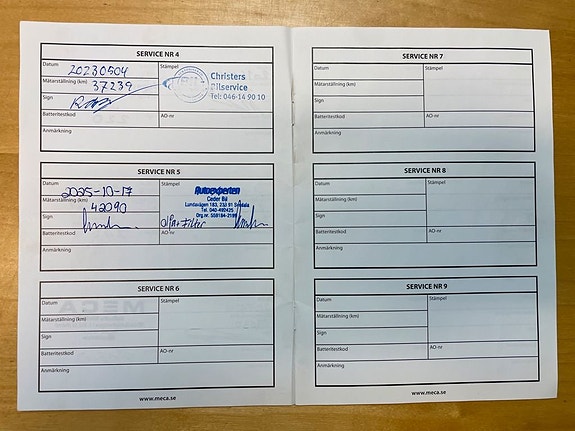 SERVICE NR 4
Datum 20230504
Stämpel
Christers
Bilservice
Tel: 046-14 90 10
Mätarställning (km) 37239
Sign
Batteritestkod
AO-nr
Anmärkning
SERVICE NR 5
Datum 2025-10-17
Stämpel
Autoexperten
Ceder Bil
Lundavägen 183,
Tel. 040-492425
Org.nr.
Mätarställning (km) 42090
Sign
Batteritestkod
AO-nr
Filter
Anmärkning
SERVICE NR 6
Datum
Stämpel
Mätarställning (km)
Sign
Batteritestkod
AO-nr
Anmärkning
www.meca.se
SERVICE NR 7
Datum
Stämpel
Mätarställning (km)
Sign
Batteritestkod
AO-nr
Anmärkning
SERVICE NR 8
Datum
Stämpel
Mätarställning (km)
Sign
Batteritestkod
AO-nr
Anmärkning
SERVICE NR 9
Datum
Stämpel
Mätarställning (km)
Sign
Batteritestkod
AO-nr
Anmärkning
www.meca.se